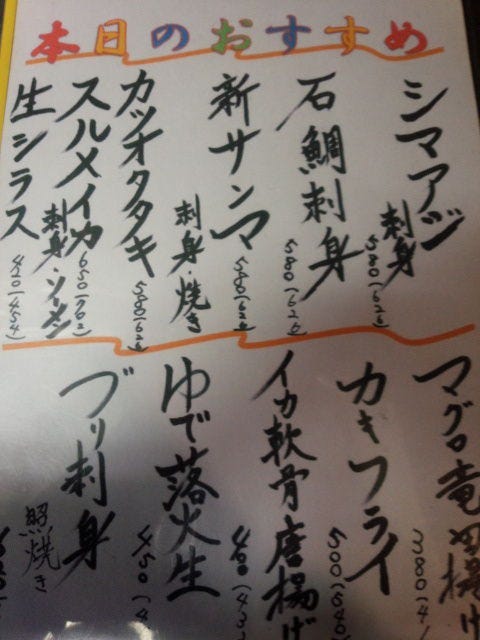 本日のおすすめ
シマアジ
刺身
580(626)
石鯛刺身
580(626)
新サンマ
刺身・焼き
580(626)
カツオタタキ
580(626)
スルメイカ
刺身・ソーメン
650(702)
生シラス
420(454)
マグロ竜田揚げ
380(4
カキフライ
500(540)
イカ軟骨唐揚げ
400(43
ゆで落火生
450(4
ブリ刺身
照焼き